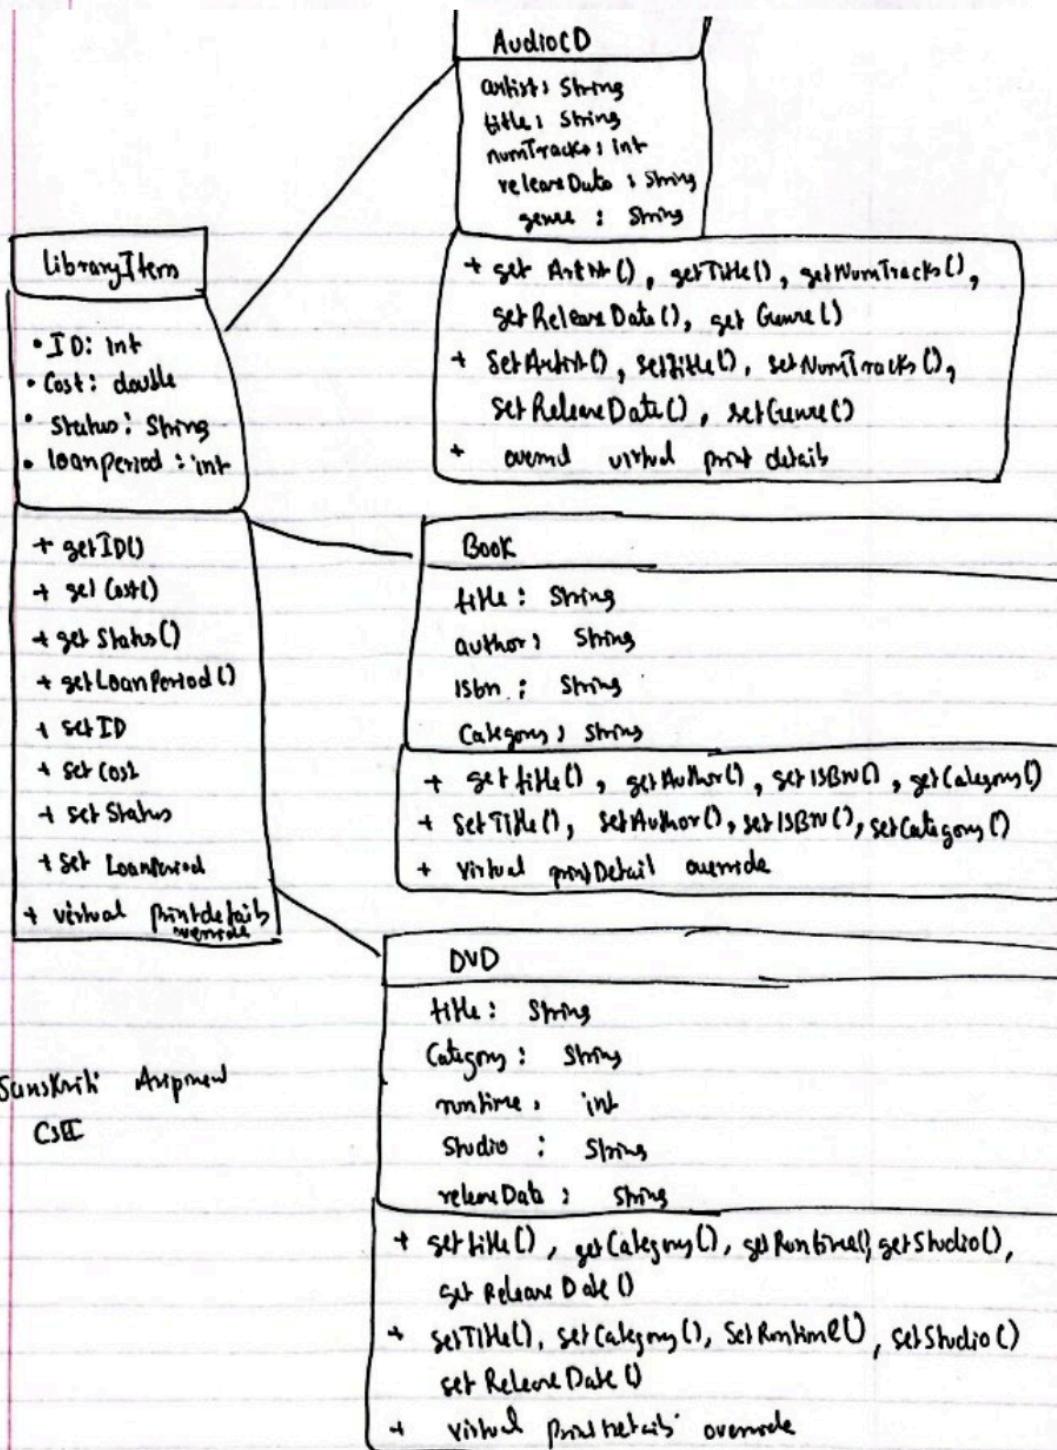 AudioCD
artist: String
title: String
numTracks: int
releaseDate : String
genre : String
+ get Artist(), getTitle(), getNumTracks(),
getReleaseDate(), get Genre()
+ SetArtist(), setTitle(), setNumTracks(),
setReleaseDate(), setGenre()
+ virtual print details
LibraryItem
• ID: int
• Cost: double
• Status: String
• loanperiod : int
+ getID()
+ getCost()
+ getStatus()
+ getLoanPeriod()
+ setID
+ set Cost
+ set Status
+ set LoanPeriod
+ virtual printdetails
override
Book
title: String
author: String
isbn: String
Category: String
+ gettitle(), getAuthor(), getISBN(), getCategory()
+ SetTitle(), setAuthor(), setISBN(), setCategory()
+ Virtual printDetail override
DVD
title: String
Category: String
runtime: int
Studio : String
releaseDate : String
+ gettitle(), getCategory(), getRuntime(), getStudio(),
get Release Date()
+ setTitle(), setCategory(), SetRuntime(), setStudio()
set Release Date()
+ virtual printDetails override
Sanskriti
CSII